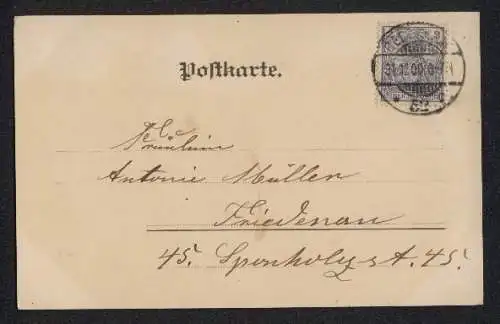 Postkarte.
31.12.00
52
Fräulein
Antonie Müller
Friedenau
45. Sponholzst. 45.